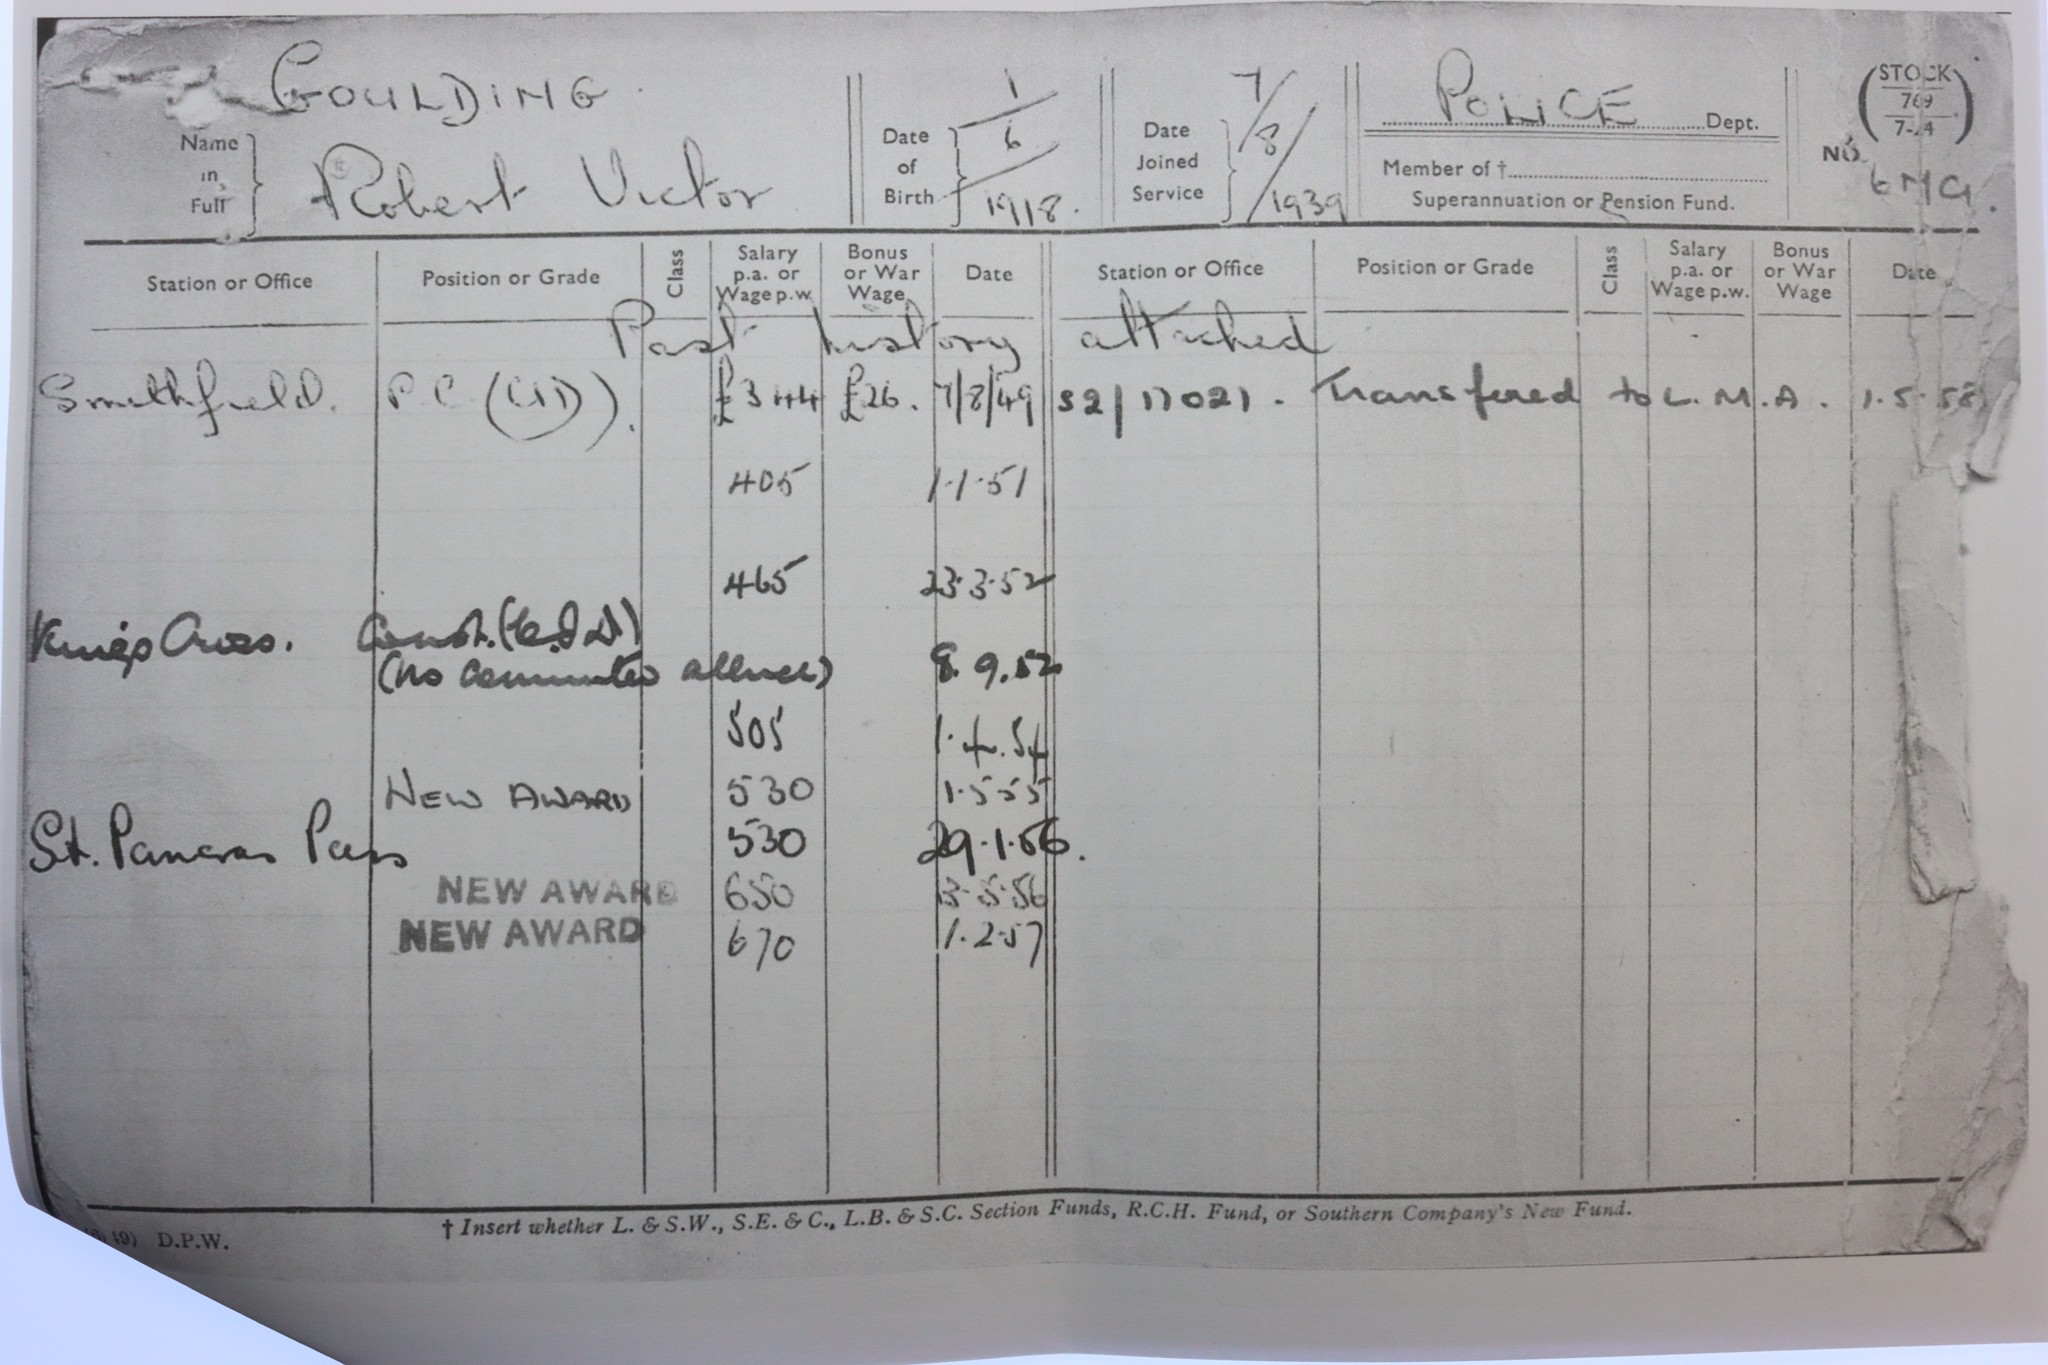 GOULDING
Name in Full } Robert Victor
Date of Birth } 1/6/1918.
Date Joined Service } 7/8/1939
POLICE Dept.
Member of †
Superannuation or Pension Fund.
(STOCK 769
No.
Station or Office Position or Grade Class Salary p.a. or Wage p.w. Bonus or War Wage Date Station or Office Position or Grade Class Salary p.a. or Wage p.w. Bonus or War Wage Date
Past history attached
Smithfield. P.C (CID). £344 £26. 7/8/49 S2/17021. Transfered to L.M.A. 1.5.58
405 1.1.51
465 23.3.52
Kings Cross. Const. (C.I.D.)
(No commuted allnce) 8.9.52
505 1.4.54
NEW AWARD 530 1.5.55
St. Pancras Pass 530 29.1.56.
NEW AWARD 650 3.5.56
NEW AWARD 670 1.2.57
† Insert whether L. & S.W., S.E. & C., L.B. & S.C. Section Funds, R.C.H. Fund, or Southern Company's New Fund.
D.P.W.